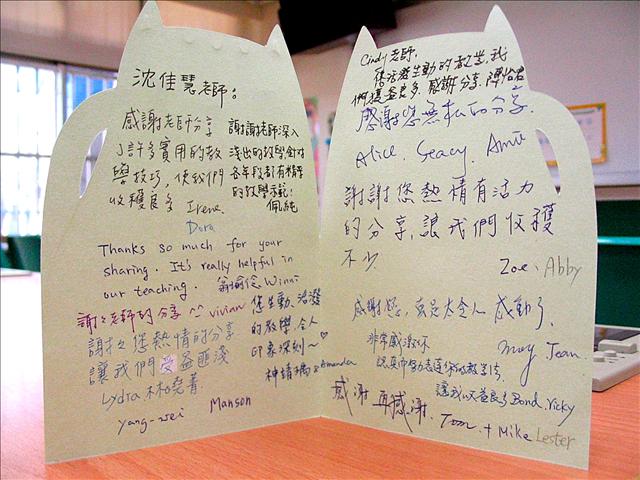 沈佳慧老師：
感謝老師分享
了許多實用的教
學技巧，使我們
收穫良多 Irene.
Dora
謝謝老師深入
淺出的教學,針對
各年段都有精彩
的教學示範!
佩純
Thanks so much for your
sharing. It's really helpful in
our teaching. Winni
謝謝老師的分享 ^^ vivian
謝謝您熱情的分享
讓我們受益匪淺
Lydra 林曉青
yang-wei Manson
您生動、活潑
的教學，令人
印象深刻～♡
Amanda
Cindy 老師，
您活潑生動的教學，我
們獲益良多，感謝分享.
感謝您無私的分享.
Alice. Stacy. Annie
謝謝您熱情有活力
的分享,讓我們收穫
不少.
Zoe. Abby
感謝您,真是太令人感動了.
May Jean.
非常感謝你
讓我以後良多 Bond. Vicky
感謝再感謝. Tom. + Mike Lester